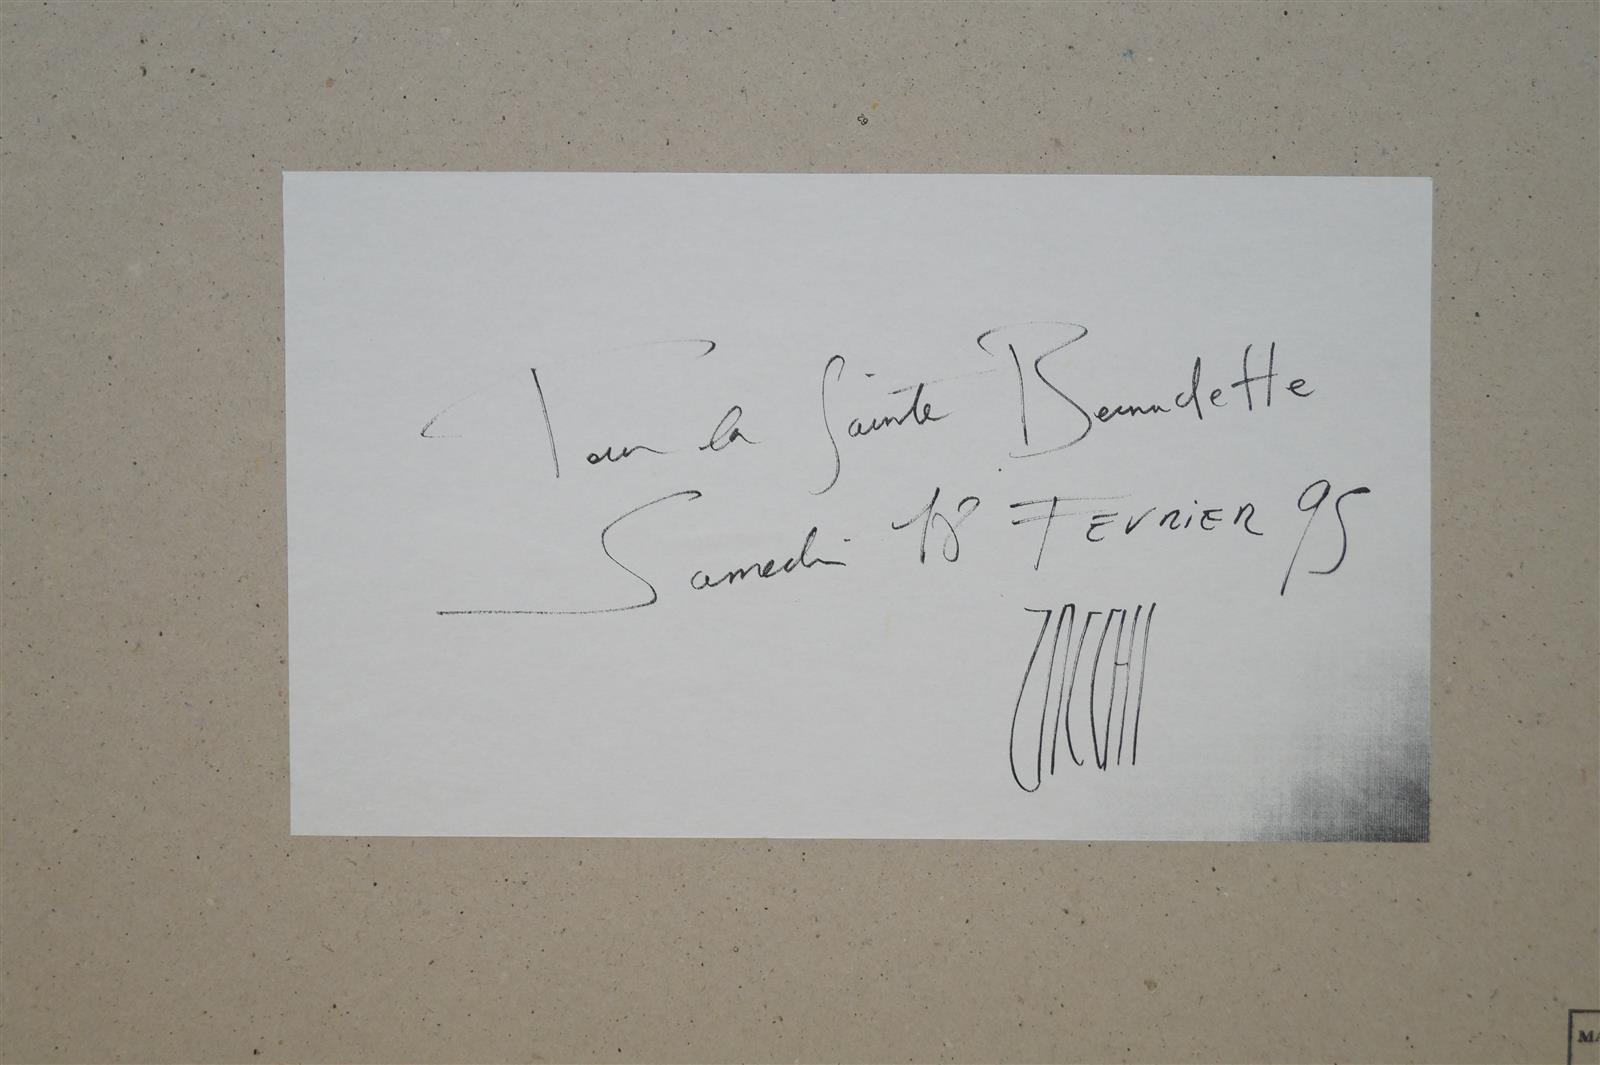 Pour la Sainte Bernadette
Samedi 18 FEVRIER 95
ZACCHI
MA